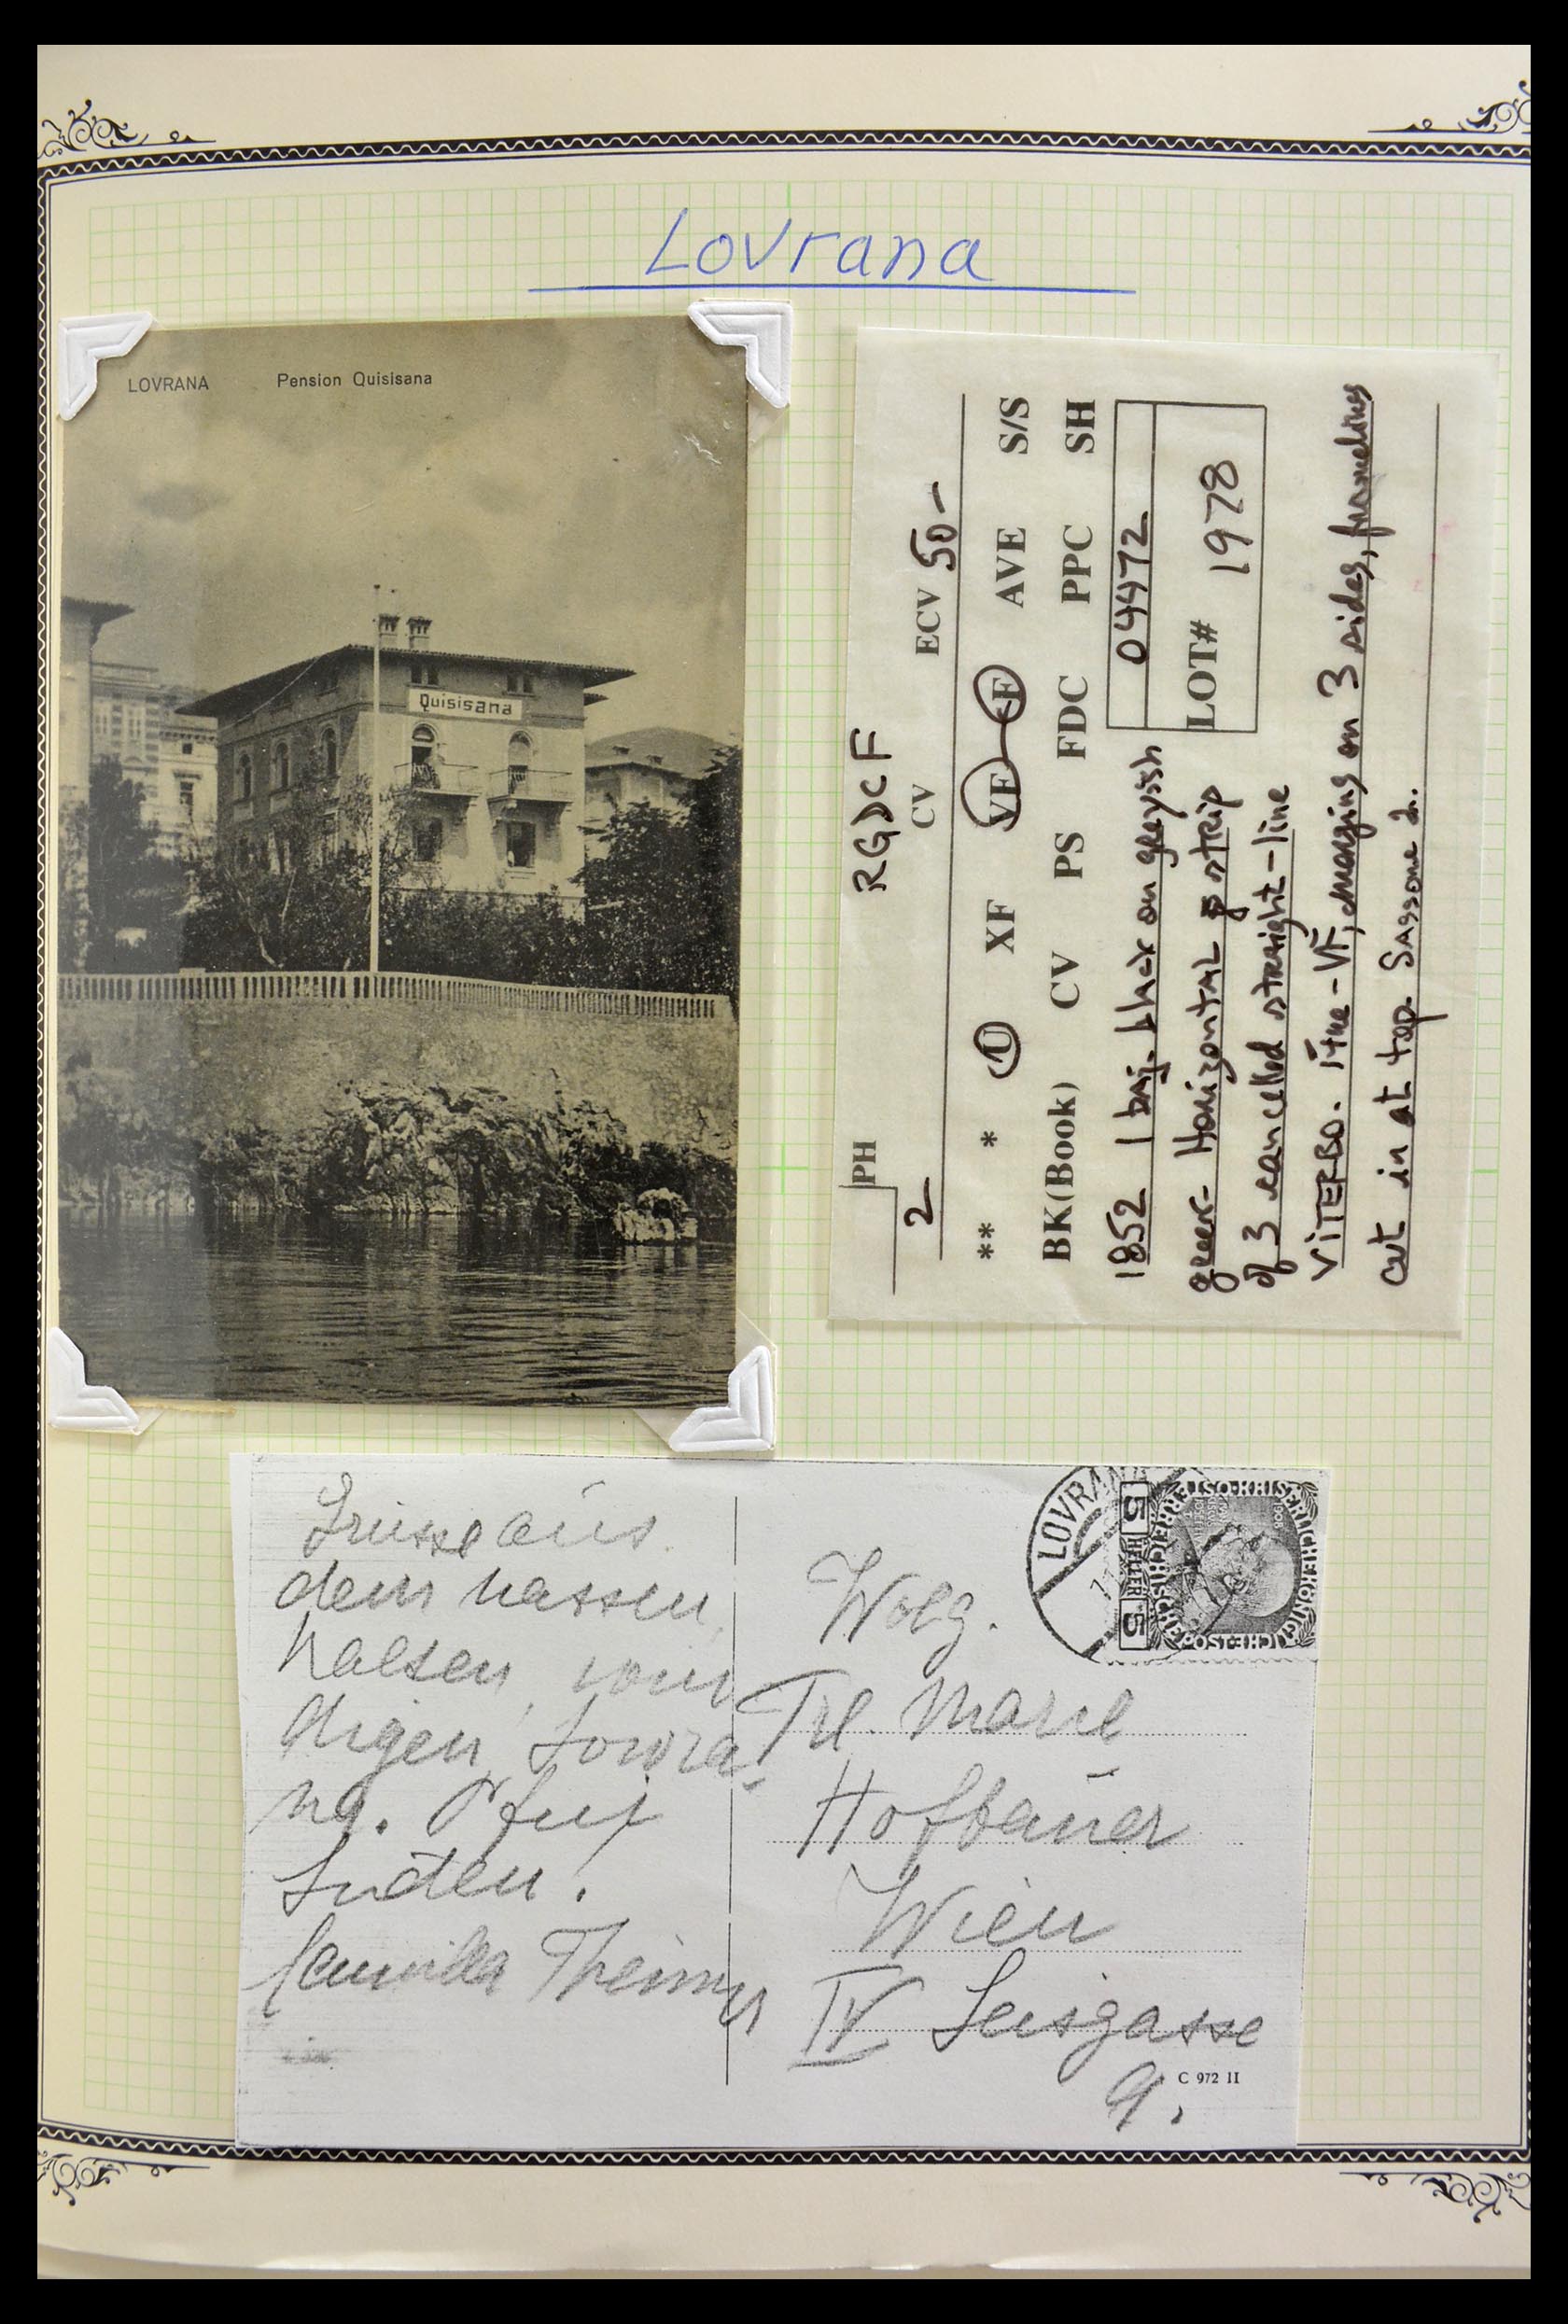 Lovrana
LOVRANA Pension Quisisana
Quisisana
PH
2
RGDCF
CV ECV 50-
** * U XF VF F AVE S/S
BK(Book) CV PS FDC PPC SH
04472
LOT# 1978
1852 1 baj. black on greyish
green- Horizontal strip
of 3 cancelled straight-line
VITERBO. Fine-VF, margins on 3 sides, framelines
cut in at top. Sassone 2.
Grüsse aus
dem nassen,
kalten,
digen, Lovra-
na. Pfui
Süden!
Camilla Theimer
LOVRANA
5 HELLER 5
Wolg.
Frl. Marie
Hofbauer
Wien
IV Leisgasse
9.
C 972 II